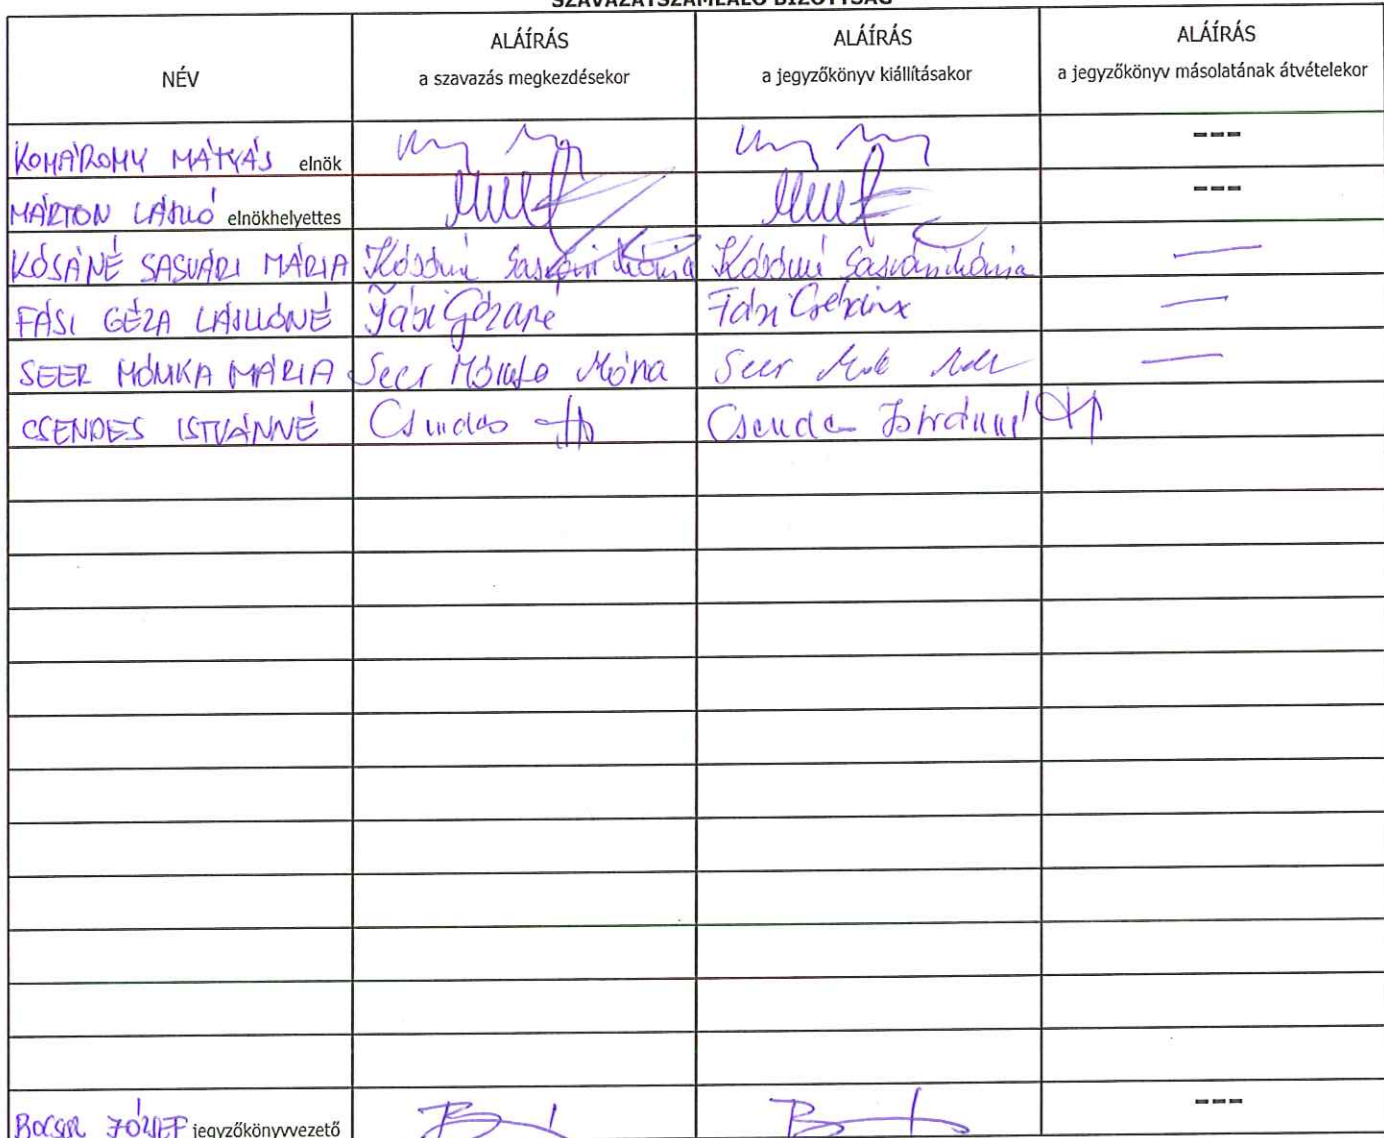 SZAVAZATSZÁMLÁLÓ BIZOTTSÁG
NÉV
ALÁÍRÁS
a szavazás megkezdésekor
ALÁÍRÁS
a jegyzőkönyv kiállításakor
ALÁÍRÁS
a jegyzőkönyv másolatának átvételekor
KOMÁROMY MÁTYÁS elnök ---
MÁRTON LÁSZLÓ elnökhelyettes ---
KÓSÁNÉ SASVÁRI MÁRIA Kósáné Sasvári Mária Kósáné Sasvári Mária —
FÁSI GÉZA LÁSZLÓNÉ Fási Gézáné Fási Gézáné —
SEER MÓNIKA MÁRIA Seer Mónika Mária Seer —
CSENDES ISTVÁNNÉ Csendes Csendes Istvánné
JÓZSEF jegyzőkönyvvezető ---